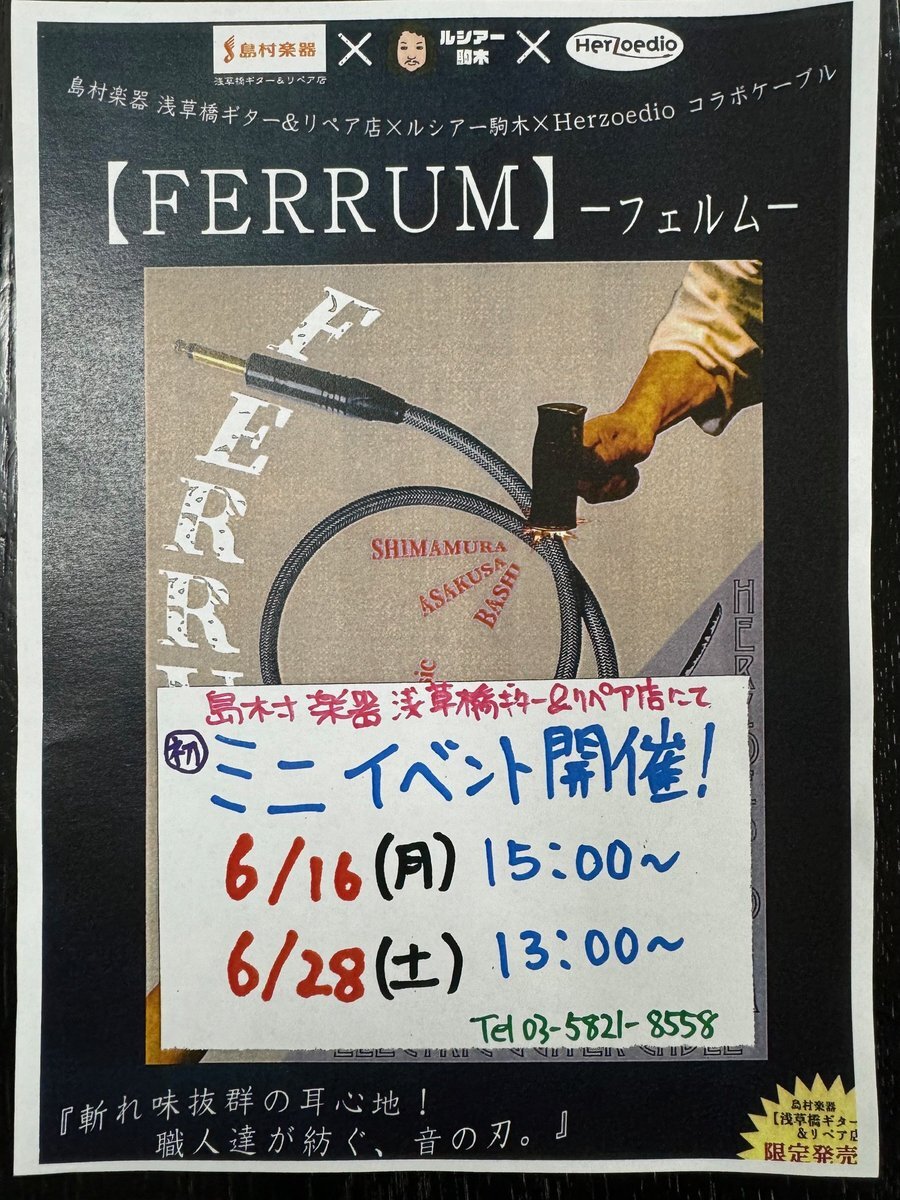 島村楽器
浅草橋ギター&リペア店
×
ルシアー
駒木
×
Herzoedio
島村楽器 浅草橋ギター&リペア店×ルシアー駒木×Herzoedio コラボケーブル
【FERRUM】−フェルム−
FERR
SHIMAMURA
ASAKUSA
BASHI
島村楽器 浅草橋ギター&リペア店にて
初 ミニイベント開催!
6/16(月) 15:00~
6/28(土) 13:00~
Tel 03-5821-8558
『斬れ味抜群の耳心地!
職人達が紡ぐ、音の刃。』
島村楽器
【浅草橋ギター
&リペア店
限定発売